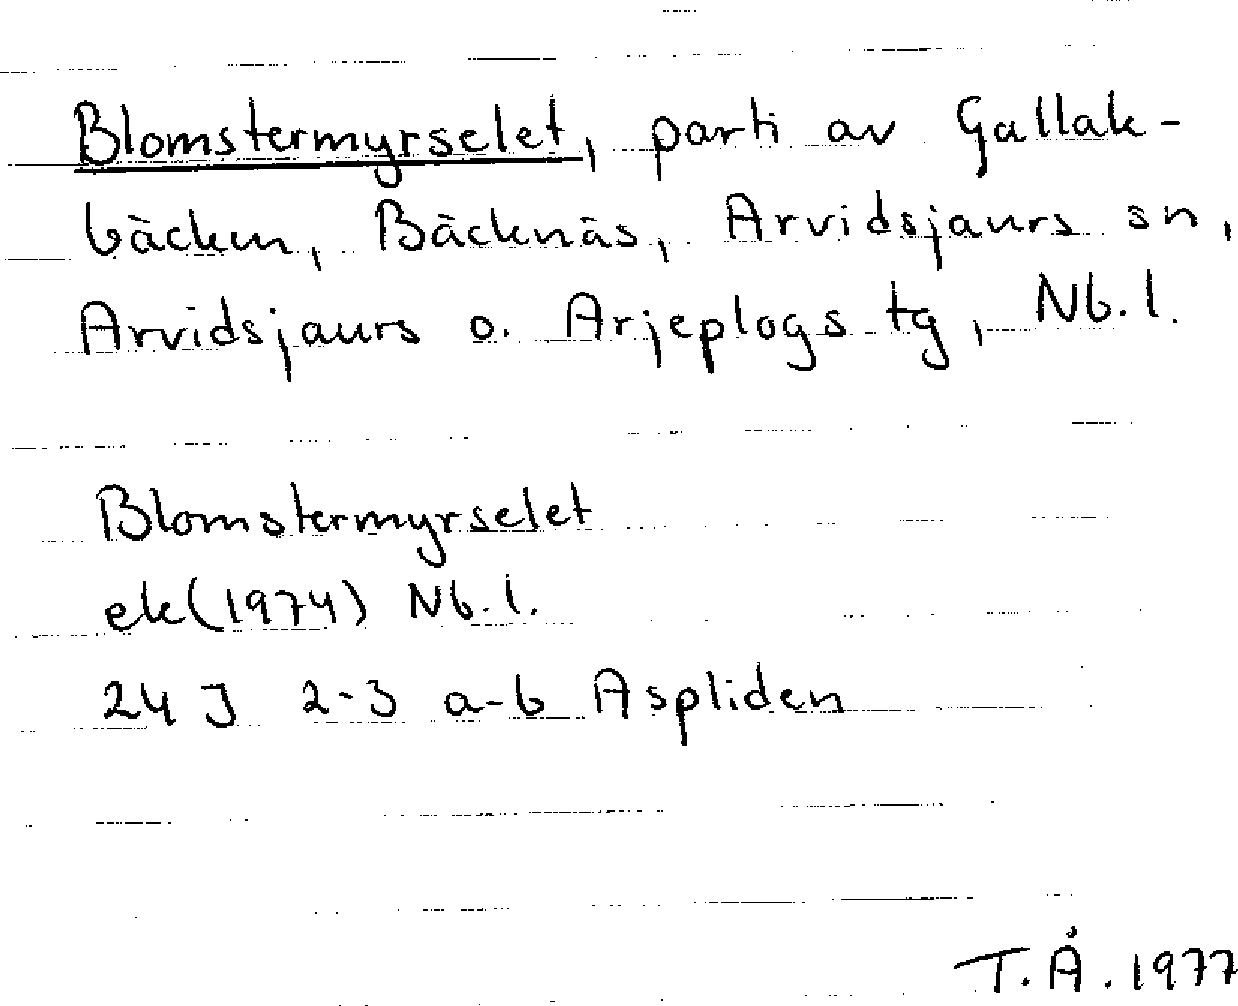 Blomstermyrselet, parti av Gallak-
bäcken, Bäcknäs, Arvidsjaurs sn,
Arvidsjaurs o. Arjeplogs tg, Nb.l.
Blomstermyrselet
ek(1974) Nb.l.
24 J 2-3 a-b Aspliden
T.Å.1977